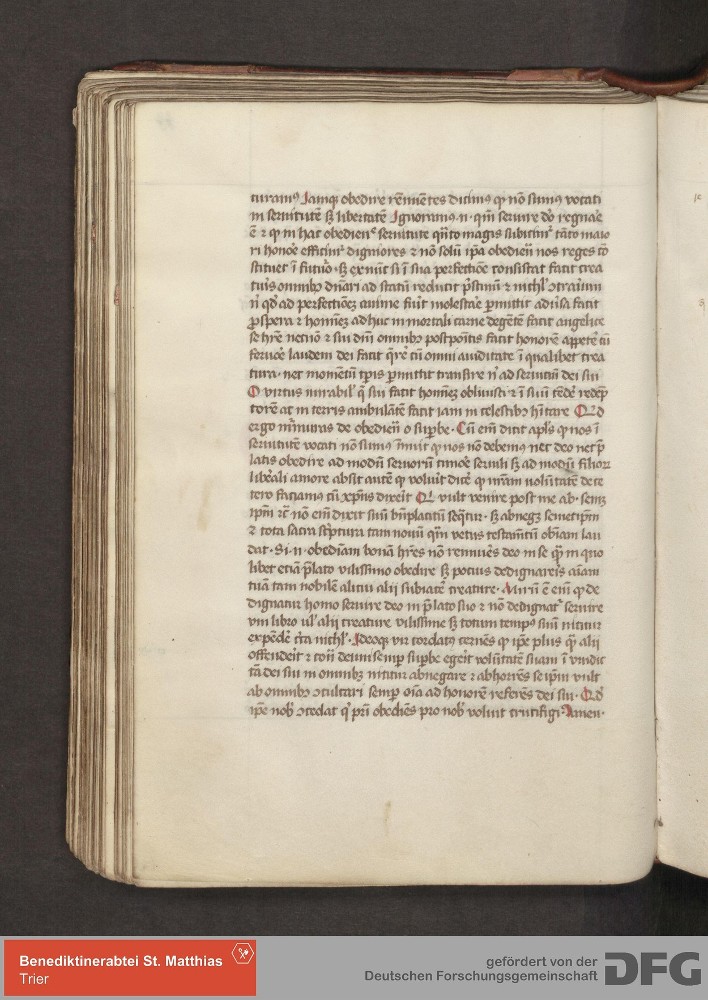 turamꝰ Iamqꝫ obedire rēnuētes dicimꝰ ꝙ nō sumꝰ vocati
in seruitutē sꝫ libertatē Ignoramꝰ .n. qm̄ seruire dō regnare
ē ⁊ ꝙ in hac obedien seruitute qn̄to magis subicimr tāto maio
ri honoe efficimr digniores ⁊ nō solū ip̄a obedien nos reges cō
stituet ī futuro · sꝫ ex nūc si ī sua perfectiōe consistat facit crea
turis omnibꝫ dn̄ari ad statū reducit pristinū ⁊ nichil ↄtrarium
qd̓ ad perfectiōeꝫ anime fiūt molestare permittit aduersa facit
prospera ⁊ hominē adhuc in mortali carne degētē facit angelice
se hr̄e necnō ⁊ sui dn̄i omnibꝫ postpositis facit honorē appetere cū
feruore laudem dei facit querere cū omni auiditate ī qualibet crea
tura · nec momētū tp̄is permittit transire ad seruiciū dei sui
O virtus mirabilꝰ q̄ sui facit hominē obliuisci ⁊ ī suū tēdere redēp
torē ac in terris ambulātē facit iam in celestibꝫ hītare Qd̓
ergo murmuras de obedien o superbe · Cū em̄ dicit apls ꝙ nos ī
seruitutē vocati nō sumꝰ īnuit ꝙ nos nō debemꝰ nec deo nec p̄
latis obedire ad modū seruorū timore seruili sꝫ ad modū filioꝝ
liberali amore absit autē ꝙ voluit dicere ꝙ nr̄am volūtatē de ce
tero faciamꝰ cū xp̄us dixerit Qi vult venire post me ab · semꝫ
ipm̄ ⁊c̄ nō em̄ dixit suū bn̄placitū seq̄tur · sꝫ abnegꝫ semetipm̄
⁊ tota sacra scriptura tam nouū q̄m vetus testamētū obiam lau
dat · Si .n. obediam bonā hr̄es nō rennueres deo in se q̄ in quo
libet etiā p̄lato vilissimo obedire sꝫ pocius dedignareis aiam
tuā tam nobilē alicui alii subicere creature · Mirū ē em̄ ꝙ de
dignatur homo seruire deo in p̄lato suo ⁊ nō dedignatr seruire
vni libro ul̓ alii creature vilissime sꝫ totum tempꝰ suū nititur
expēdere circa nichil · Ideoqꝫ vir cordatꝰ cernēs ꝙ ip̄e plus q̄ alii
offenderit ⁊ contra deum semper superbe egerit volūtatē suam ī vindic
tā dei sui in omnibꝫ nititur abnegare ⁊ abhorrēs seipm̄ vult
ab omnibꝫ ↄculcari semper oīa ad honorē referēs dei sui · Qd̓
ip̄e nobꝫ ↄcedat qi pr̄i obediēs pro nobꝫ voluit crucifigi Amen ·
Benediktinerabtei St. Matthias
Trier
gefördert von der
Deutschen Forschungsgemeinschaft
DFG